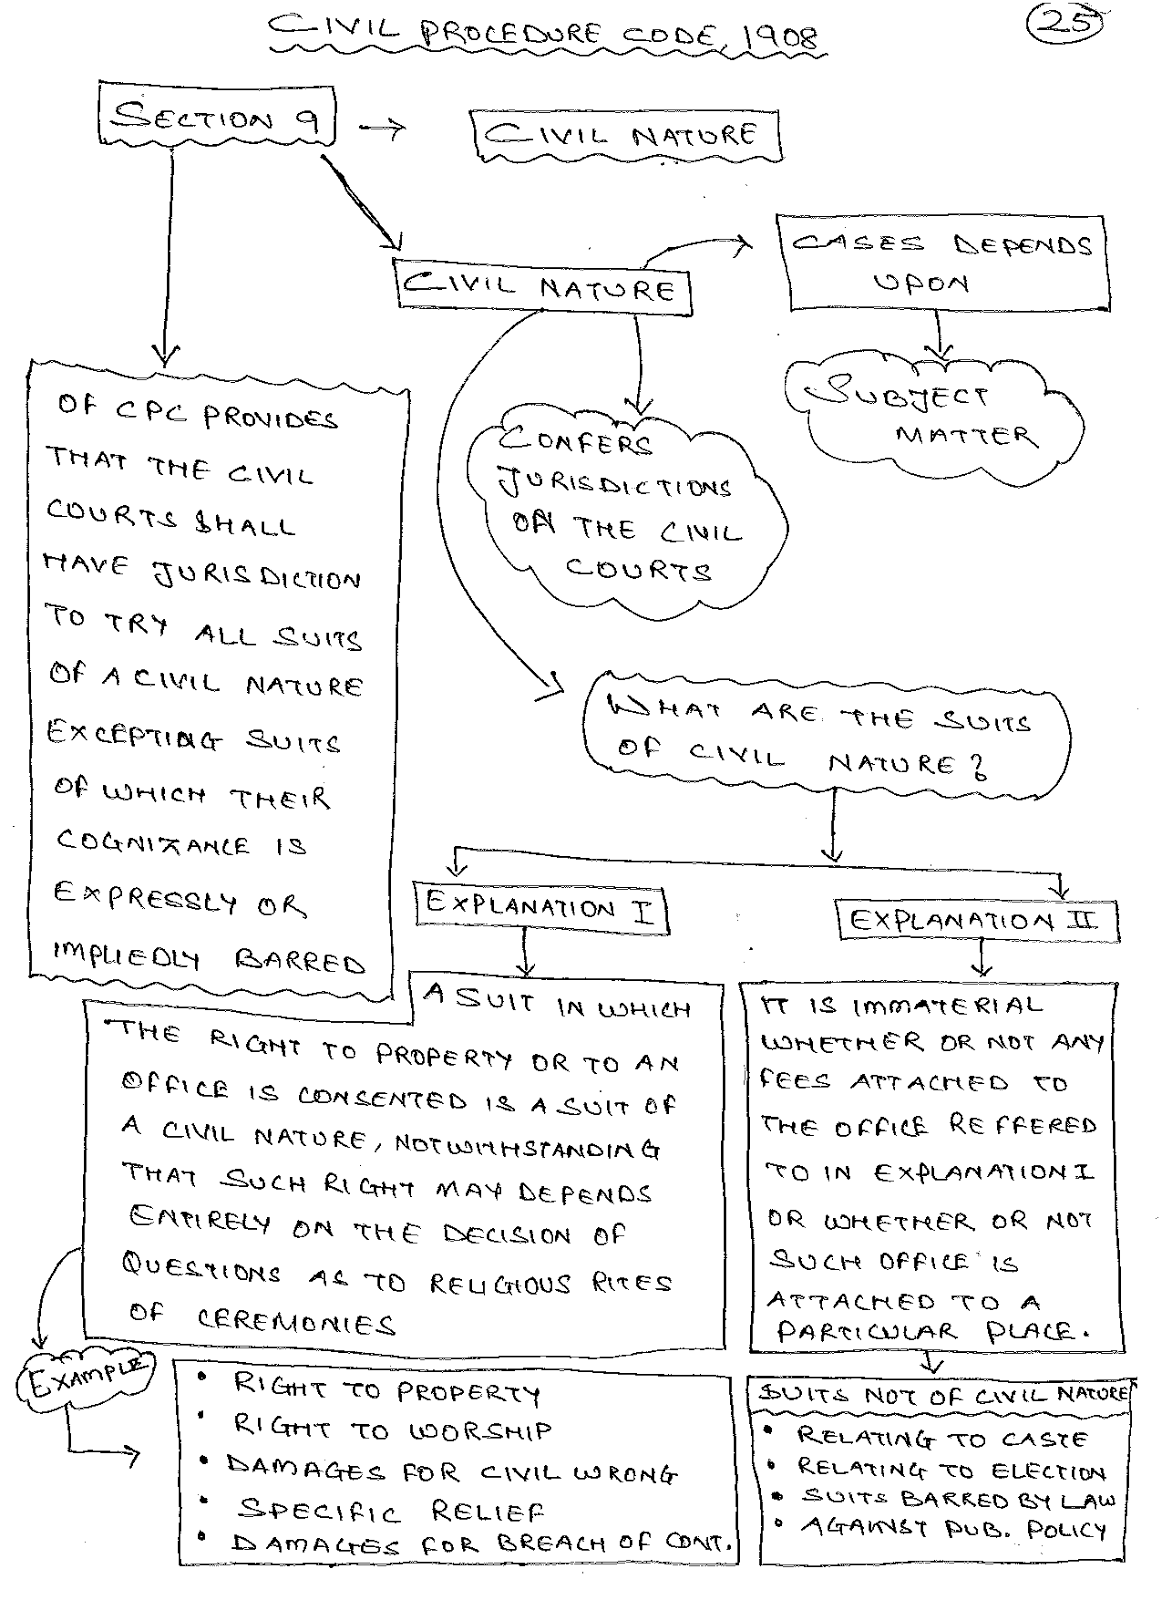 CIVIL PROCEDURE CODE, 1908
25
SECTION 9
CIVIL NATURE
CIVIL NATURE
CASES DEPENDS
UPON
SUBJECT
MATTER
CONFERS
JURISDICTIONS
ON THE CIVIL
COURTS
OF CPC PROVIDES
THAT THE CIVIL
COURTS SHALL
HAVE JURISDICTION
TO TRY ALL SUITS
OF A CIVIL NATURE
EXCEPTING SUITS
OF WHICH THEIR
COGNIZANCE IS
EXPRESSLY OR
IMPLIEDLY BARRED
WHAT ARE THE SUITS
OF CIVIL NATURE?
EXPLANATION I
A SUIT IN WHICH
THE RIGHT TO PROPERTY OR TO AN
OFFICE IS CONSENTED IS A SUIT OF
A CIVIL NATURE, NOTWITHSTANDING
THAT SUCH RIGHT MAY DEPENDS
ENTIRELY ON THE DECISION OF
QUESTIONS AS TO RELIGIOUS RITES
OF CEREMONIES
EXPLANATION II
IT IS IMMATERIAL
WHETHER OR NOT ANY
FEES ATTACHED TO
THE OFFICE REFFERED
TO IN EXPLANATION I
OR WHETHER OR NOT
SUCH OFFICE IS
ATTACHED TO A
PARTICULAR PLACE.
EXAMPLE
• RIGHT TO PROPERTY
• RIGHT TO WORSHIP
• DAMAGES FOR CIVIL WRONG
• SPECIFIC RELIEF
• DAMAGES FOR BREACH OF CONT.
SUITS NOT OF CIVIL NATURE
• RELATING TO CASTE
• RELATING TO ELECTION
• SUITS BARRED BY LAW
• AGAINST PUB. POLICY